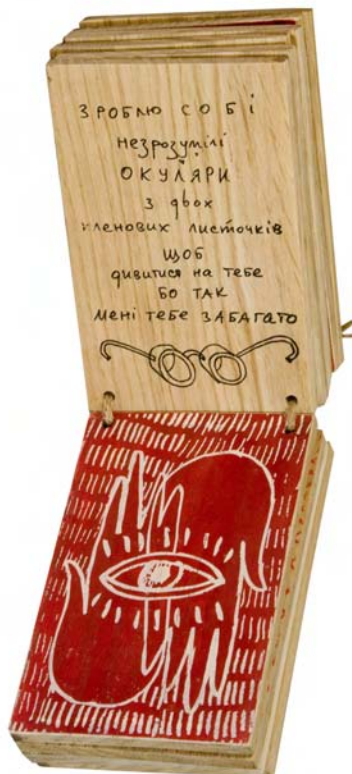 ЗРОБЛЮ СОБІ
незрозумілі
ОКУЛЯРИ
з двох
кленових листочків
ЩОБ
дивитися на тебе
БО ТАК
мені тебе ЗАБАГАТО